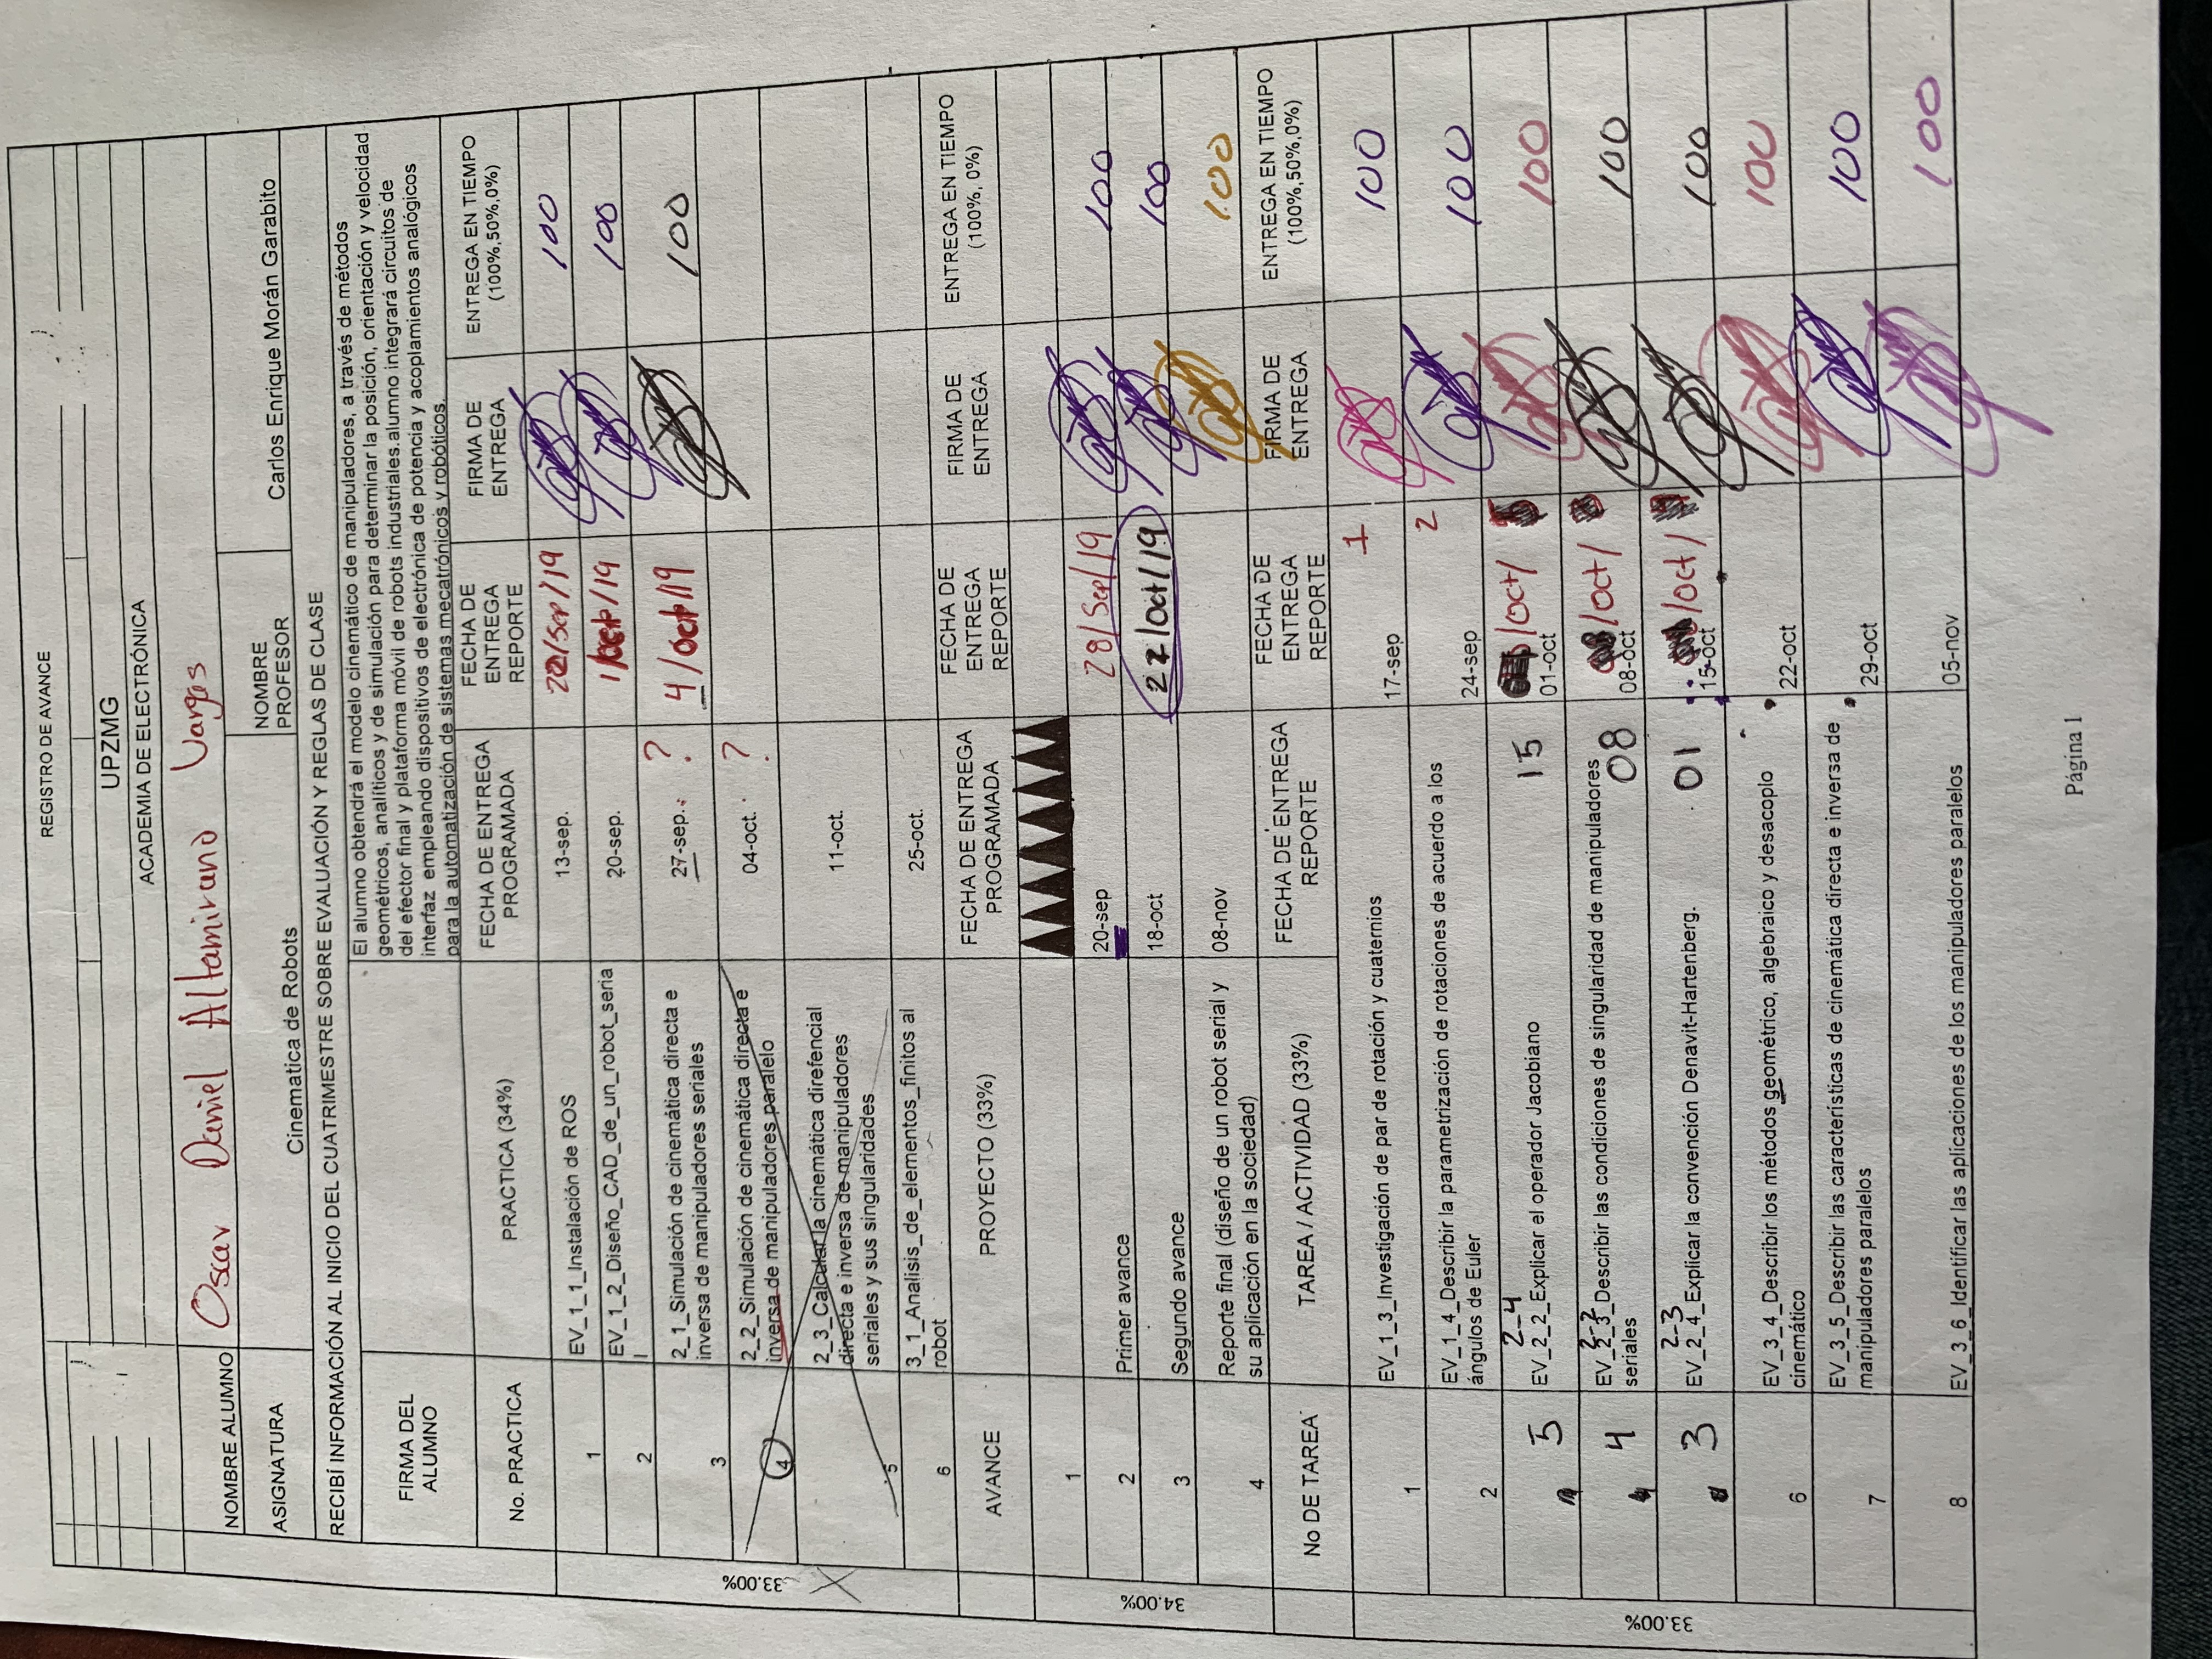 REGISTRO DE AVANCE
UPZMG
ACADEMIA DE ELECTRÓNICA
NOMBRE ALUMNO Oscar Daniel Altamirano Vargas
ASIGNATURA Cinematica de Robots NOMBRE PROFESOR Carlos Enrique Morán Garabito
RECIBÍ INFORMACIÓN AL INICIO DEL CUATRIMESTRE SOBRE EVALUACIÓN Y REGLAS DE CLASE
FIRMA DEL ALUMNO
El alumno obtendrá el modelo cinemático de manipuladores, a través de métodos
geométricos, analíticos y de simulación para determinar la posición, orientación y velocidad
del efector final y plataforma móvil de robots industriales.alumno integrará circuitos de
interfaz empleando dispositivos de electrónica de potencia y acoplamientos analógicos
para la automatización de sistemas mecatrónicos y robóticos.
No. PRACTICA PRACTICA (34%) FECHA DE ENTREGA PROGRAMADA FECHA DE ENTREGA REPORTE FIRMA DE ENTREGA ENTREGA EN TIEMPO (100%,50%,0%)
33.00%
X
1 EV_1_1_Instalación de ROS 13-sep. 22/Sep/19 100
2 EV_1_2_Diseño_CAD_de_un_robot_seria
l 20-sep. 1/oct/19 100
3 2_1_Simulación de cinemática directa e
inversa de manipuladores seriales 27-sep. ? 4/oct/19 100
4 2_2_Simulación de cinemática directa e
inversa de manipuladores paralelo 04-oct. ?
5 2_3_Calcular la cinemática direfencial
directa e inversa de manipuladores
seriales y sus singularidades 11-oct.
6 3_1_Analisis_de_elementos_finitos al
robot 25-oct.
AVANCE PROYECTO (33%) FECHA DE ENTREGA PROGRAMADA FECHA DE ENTREGA REPORTE FIRMA DE ENTREGA ENTREGA EN TIEMPO (100%, 0%)
34.00%
1
2 Primer avance 20-sep 28/Sep/19 100
3 Segundo avance 18-oct 22/Oct/19 100
4 Reporte final (diseño de un robot serial y
su aplicación en la sociedad) 08-nov 100
No DE TAREA TAREA / ACTIVIDAD (33%) FECHA DE ENTREGA REPORTE FECHA DE ENTREGA REPORTE FIRMA DE ENTREGA ENTREGA EN TIEMPO (100%,50%,0%)
33.00%
1 EV_1_3_Investigación de par de rotación y cuaternios 1 17-sep 100
2 EV_1_4_Describir la parametrización de rotaciones de acuerdo a los
ángulos de Euler 2 24-sep 100
2_4
5 EV_2_2_Explicar el operador Jacobiano 15 /oct/ 01-oct 100
2-2
4 EV_2_3_Describir las condiciones de singularidad de manipuladores
seriales 08 /oct/ 08-oct 100
2-3
3 EV_2_4_Explicar la convención Denavit-Hartenberg. 01 /oct/ 15-oct 100
6 EV_3_4_Describir los métodos geométrico, algebraico y desacoplo
cinemático 22-oct 100
7 EV_3_5_Describir las características de cinemática directa e inversa de
manipuladores paralelos 29-oct 100
8 EV_3_6_Identificar las aplicaciones de los manipuladores paralelos 05-nov 100
Página 1